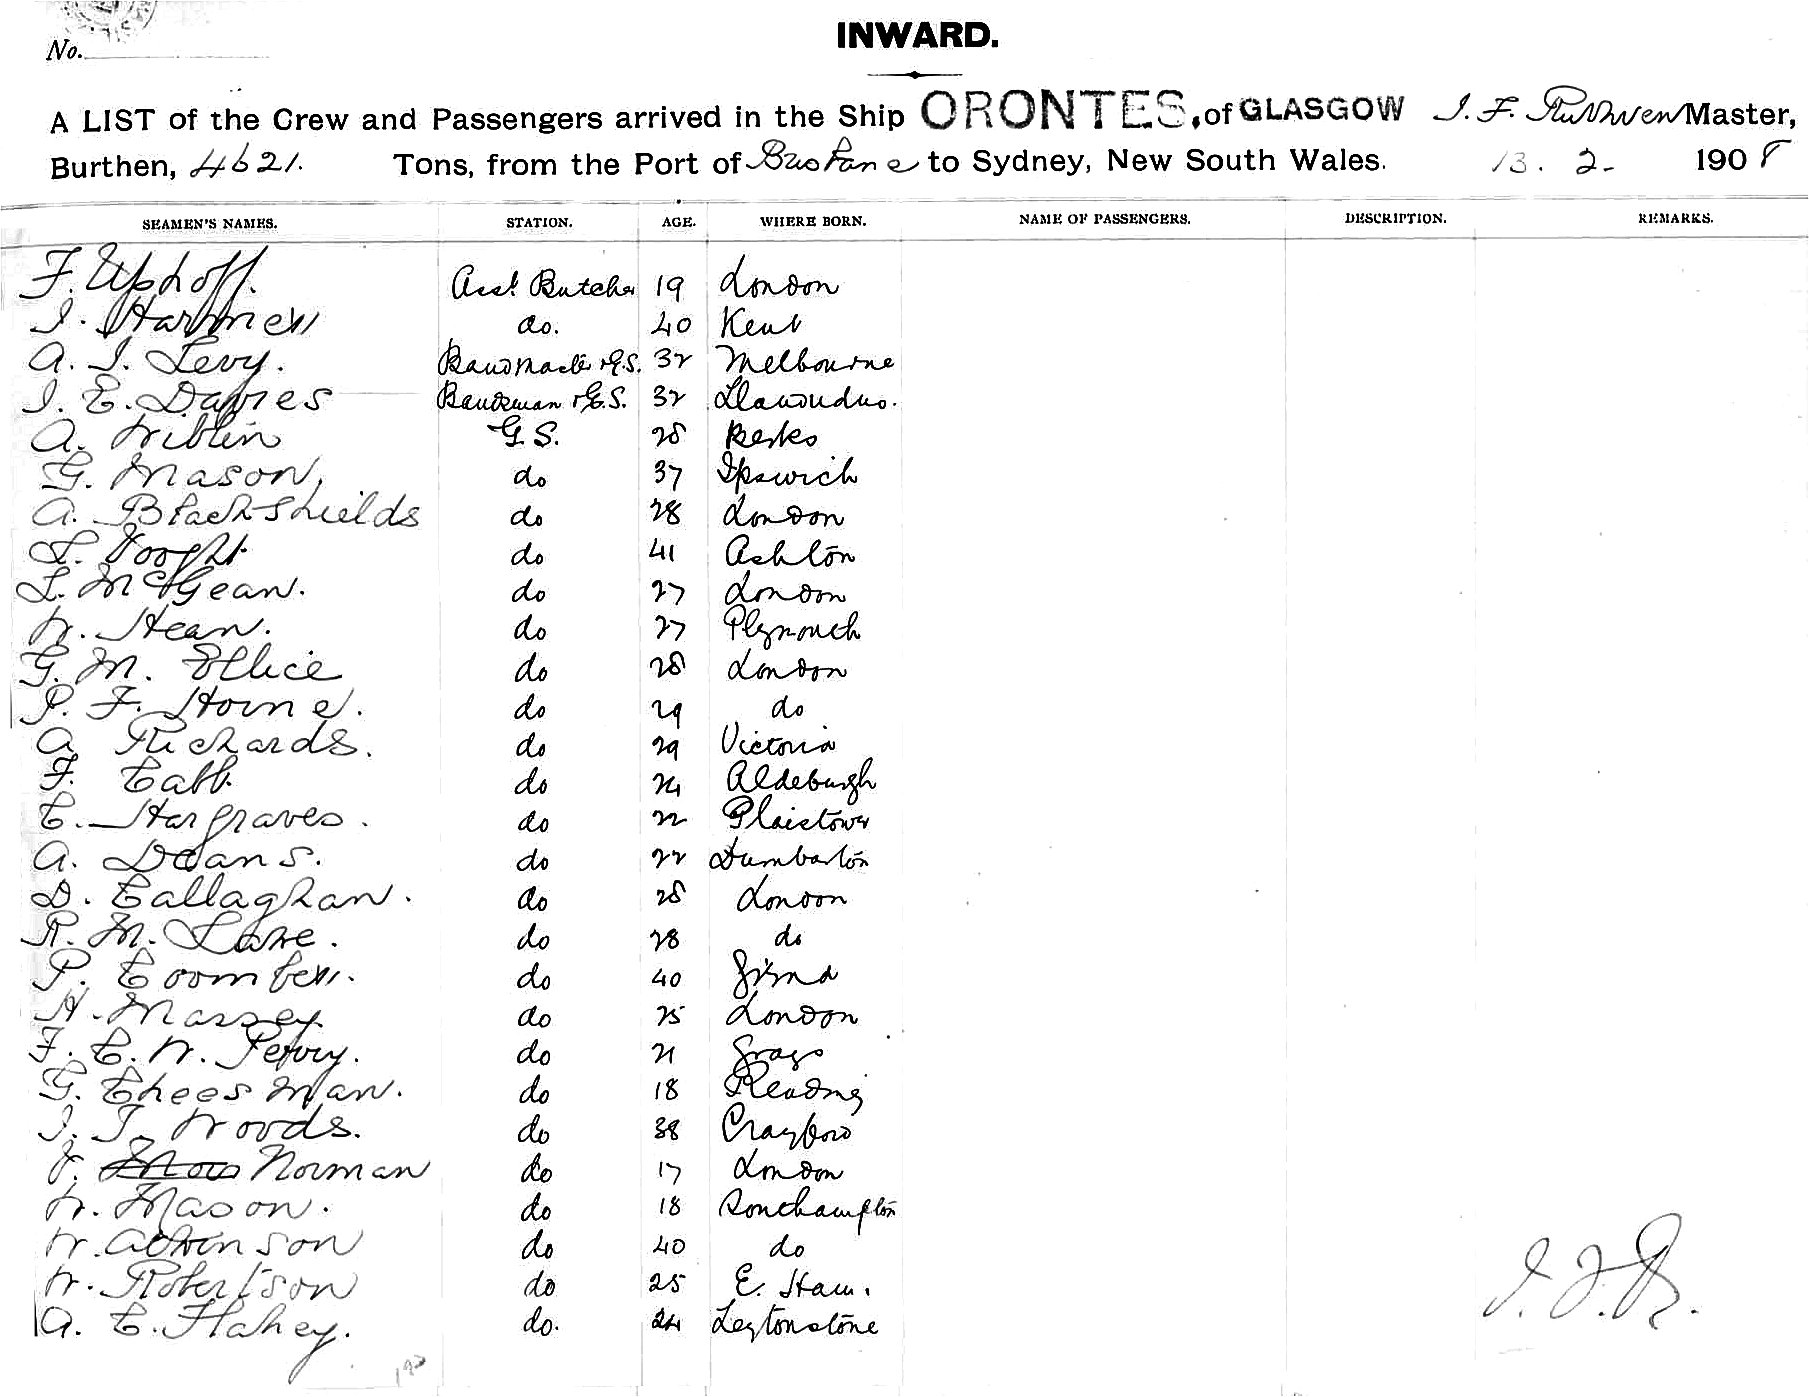 No.
INWARD.
A LIST of the Crew and Passengers arrived in the Ship ORONTES, of GLASGOW J. F. Ruthven Master,
Burthen, 4621. Tons, from the Port of Brisbane to Sydney, New South Wales. 13. 2. 1908
SEAMEN'S NAMES. STATION. AGE. WHERE BORN. NAME OF PASSENGERS. DESCRIPTION. REMARKS.
F. Uphoff. Asst. Butcher 19 London
J. Hammell do. 40 Kent
A. J. Levy. Bandmaster & G.S. 32 Melbourne
J. E. Davies Bandsman & G.S. 32 Llandudno.
A. Niblin G.S. 28 Berks
G. Mason, do 37 Ipswich
A. Blackshields do 28 London
do 41 Ashton
L. McGean. do 27 London
W. Hean. do 27 Plymouth
G. M. Ellice do 28 London
P. F. Horne. do 29 do
A Richards. do 29 Victoria
F. Cabb. do 24 Aldeburgh
C. Hargraves. do 22 Plaistow
A. Deans. do 22 Dumbarton
D. Callaghan. do 28 London
R. M. Lane. do 28 do
P. Coomber. do 40
H. Massey. do 25 London
F. C. W. Perry. do 21 Grays
G. Cheesman. do 18 Reading
J. T. Woods. do 38
J. Norman do 17 London
W. Mason. do 18 Southampton
W. Atkinson do 40 do
W. Robertson do 25 E. Ham.
A. C. Flahey. do. 24 Leytonstone
J. F. R.